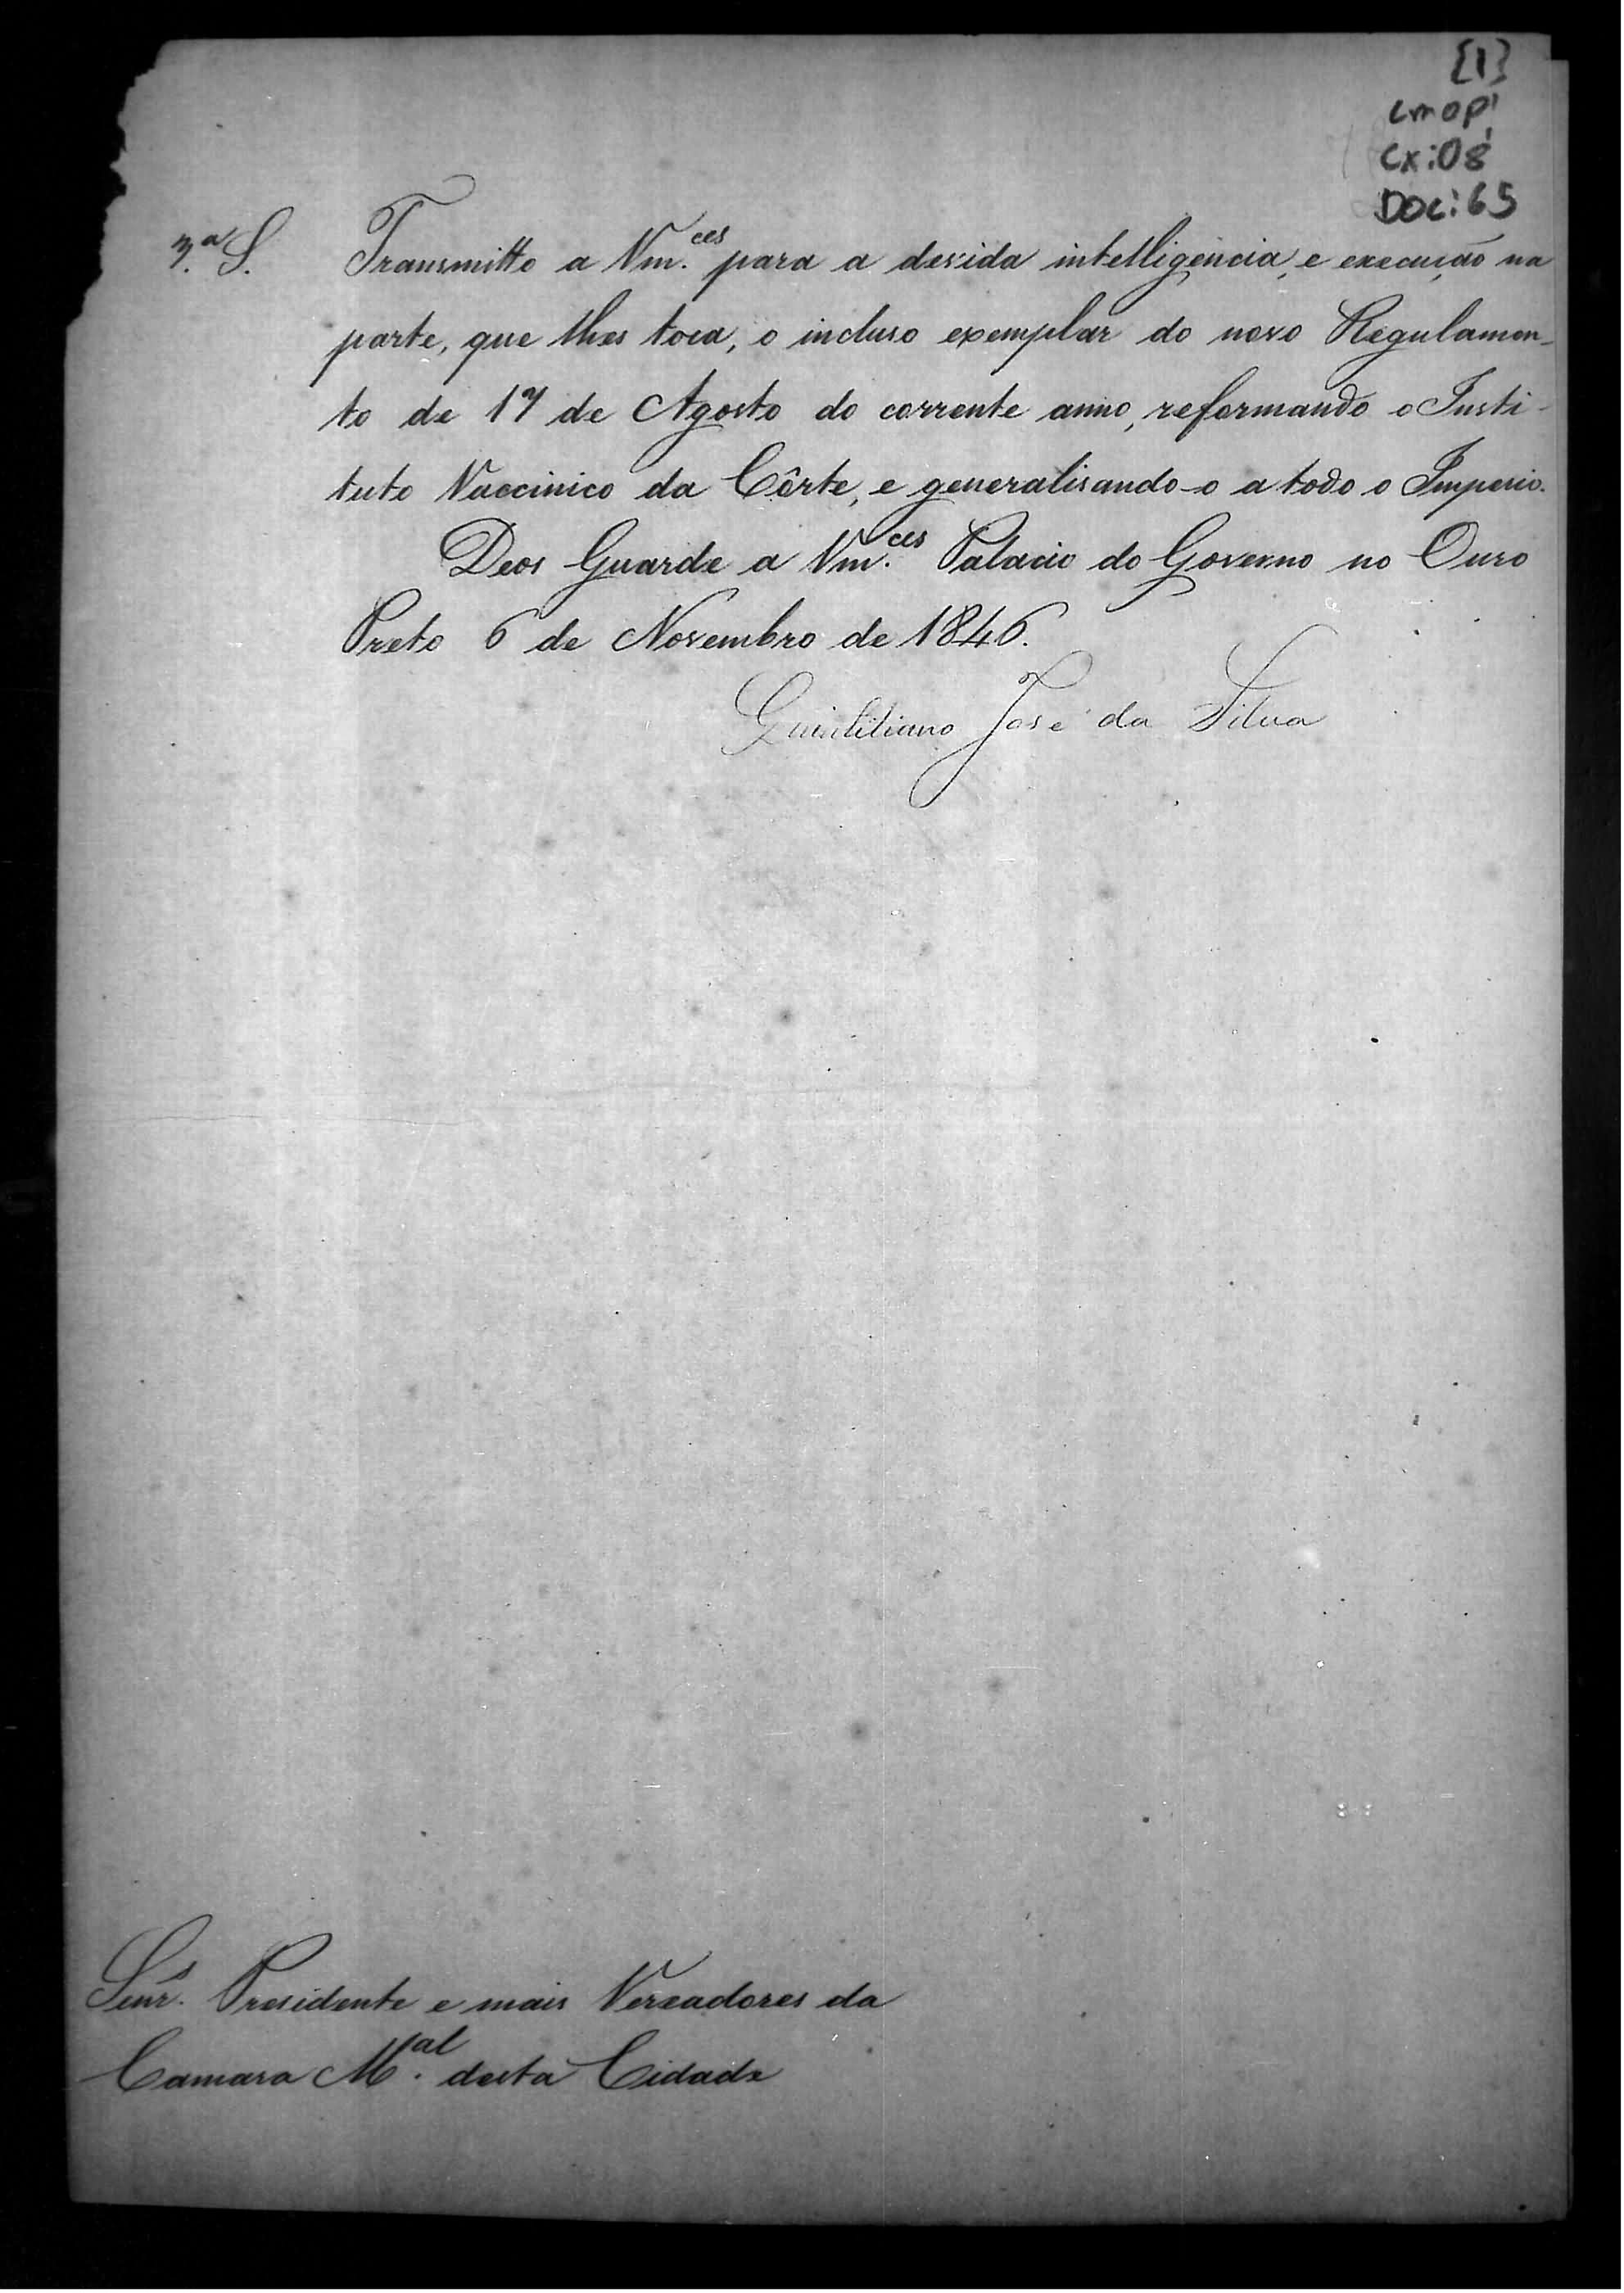 [1]
cmopi
Cx:08
Doc:65
3.ª S. Transmitto a Vm.ces para a devida intelligencia, e execução na
parte, que lhes toca, o incluso exemplar do novo Regulamen-
to de 17 de Agosto do corrente anno, reformando o Insti-
tuto Vaccinico da Côrte, e generalisando-o a todo o Imperio.
Deos Guarde a Vm.ces Palacio do Governo no Ouro
Preto 6 de Novembro de 1846.
Quintiliano José da Silva
Senr.s Presidente e mais Vereadores da
Camara M.al desta Cidade